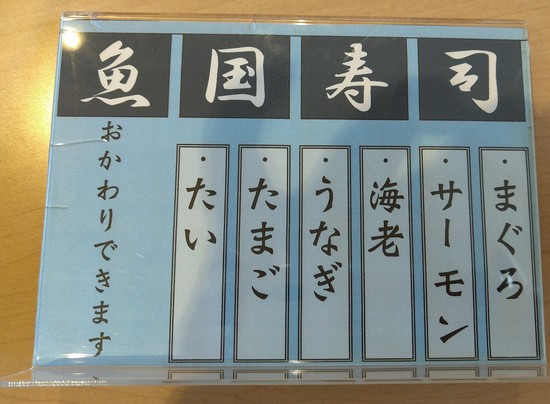 魚国寿司
・まぐろ
・サーモン
・海老
・うなぎ
・たまご
・たい
おかわりできます